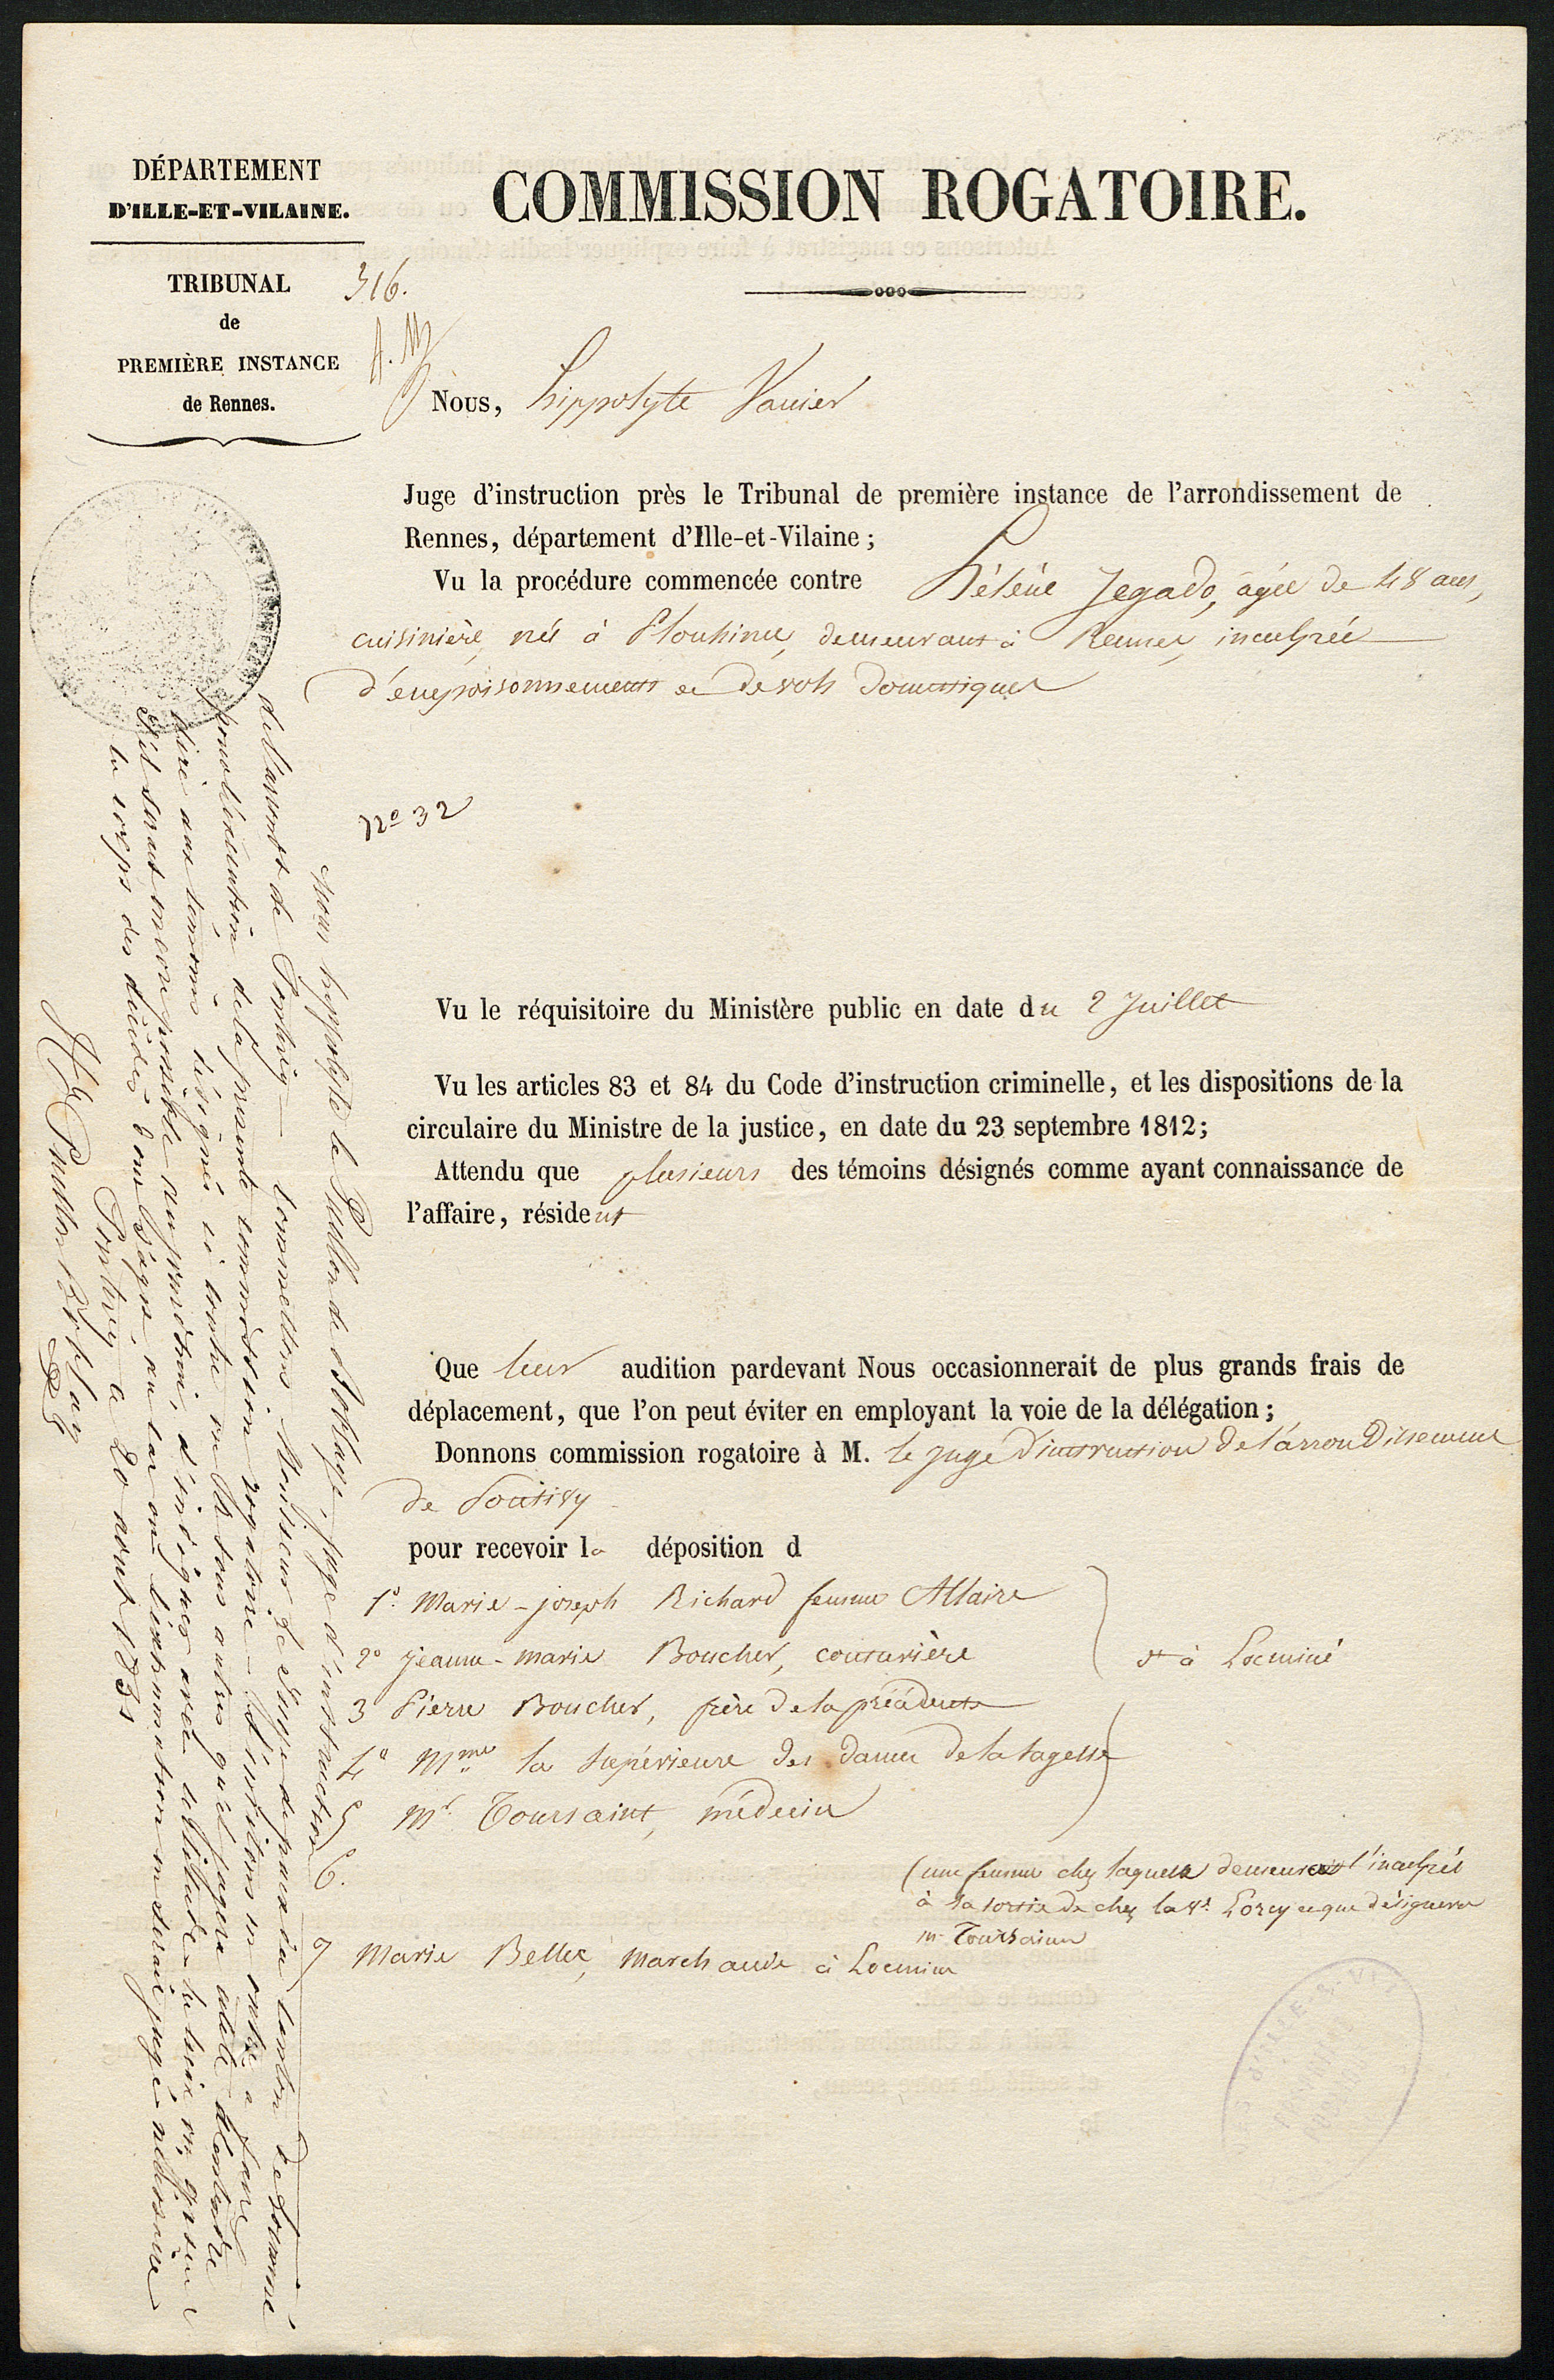 DÉPARTEMENT
D'ILLE-ET-VILAINE.
TRIBUNAL
de
PREMIÈRE INSTANCE
de Rennes.
COMMISSION ROGATOIRE.
316.
Nous, hippolyte Vanier
Juge d'instruction près le Tribunal de première instance de l'arrondissement de
Rennes, département d'Ille-et-Vilaine;
Vu la procédure commencée contre Hélène Jegado, agée de 48 ans,
cuisinière, née à Plouhinec, demeurant à Rennes, inculpée
d'empoisonnements et de vols domestiques
No 32
Vu le réquisitoire du Ministère public en date du 2 Juillet
Vu les articles 83 et 84 du Code d'instruction criminelle, et les dispositions de la
circulaire du Ministre de la justice, en date du 23 septembre 1812;
Attendu que plusieurs des témoins désignés comme ayant connaissance de
l'affaire, résident
Que leur audition pardevant Nous occasionnerait de plus grands frais de
déplacement, que l'on peut éviter en employant la voie de la délégation;
Donnons commission rogatoire à M. le juge d'instruction de l'arrondissement
de Pontivy
pour recevoir la déposition d
1o. Marie-joseph Richard femme Allaire
2o jeanne-marie Boucher, couturière
3 Pierre Boucher, frère de la précédente
4o Mme la Supérieure des dames de la Sagesse
5 Mr. Toursaint, médecin
à Locminé
6.
(une femme chez laquelle demeurait l'inculpée
à sa sortie de chez la Ve. Lorcy et que désignera
mr Toursaint
7 Marie Bellec, marchande à Locminé
nous hyppolyte le Puillon de Boblaye, juge d'instruction
de l'arrondt de Pontivy commettons Monsieur le Juge de paix du canton de Locminé
pour l'exécution de la présente commission rogatoire - l'invitons en outre à faire
aux témoins désignés ci contre
Pontivy le 20 aout 1851